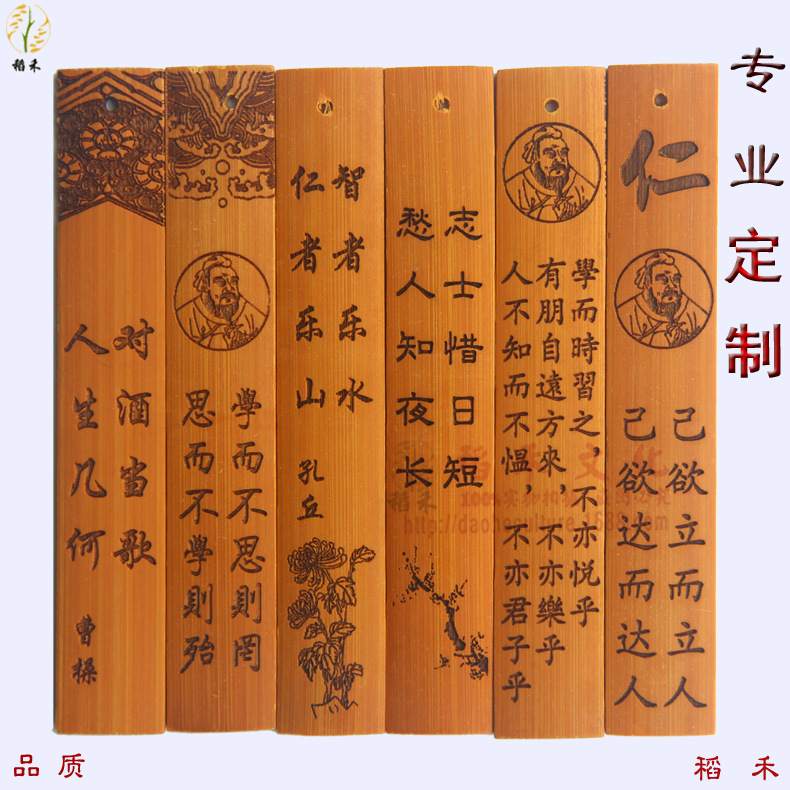 稻禾
专业定制
对酒当歌
人生几何
曹操
學而不思則罔
思而不學則殆
智者乐水
仁者乐山
孔丘
志士惜日短
愁人知夜长
學而時習之，不亦悦乎
有朋自遠方來，不亦樂乎
人不知而不愠，不亦君子乎
仁
己欲立而立人
己欲达而达人
稻禾
品质
稻禾